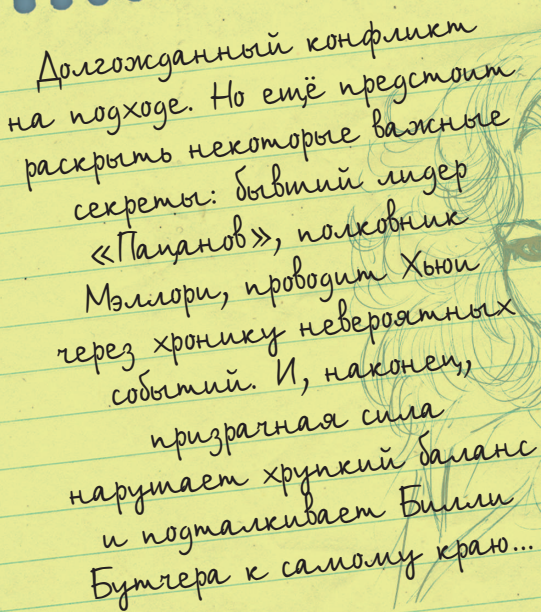 Долгожданный конфликт
на подходе. Но ещё предстоит
раскрыть некоторые важные
секреты: бывший лидер
«Пацанов», полковник
Мэллори, проводит Хьюи
через хронику невероятных
событий. И, наконец,
призрачная сила
нарушает хрупкий баланс
и подталкивает Билли
Бутчера к самому краю...